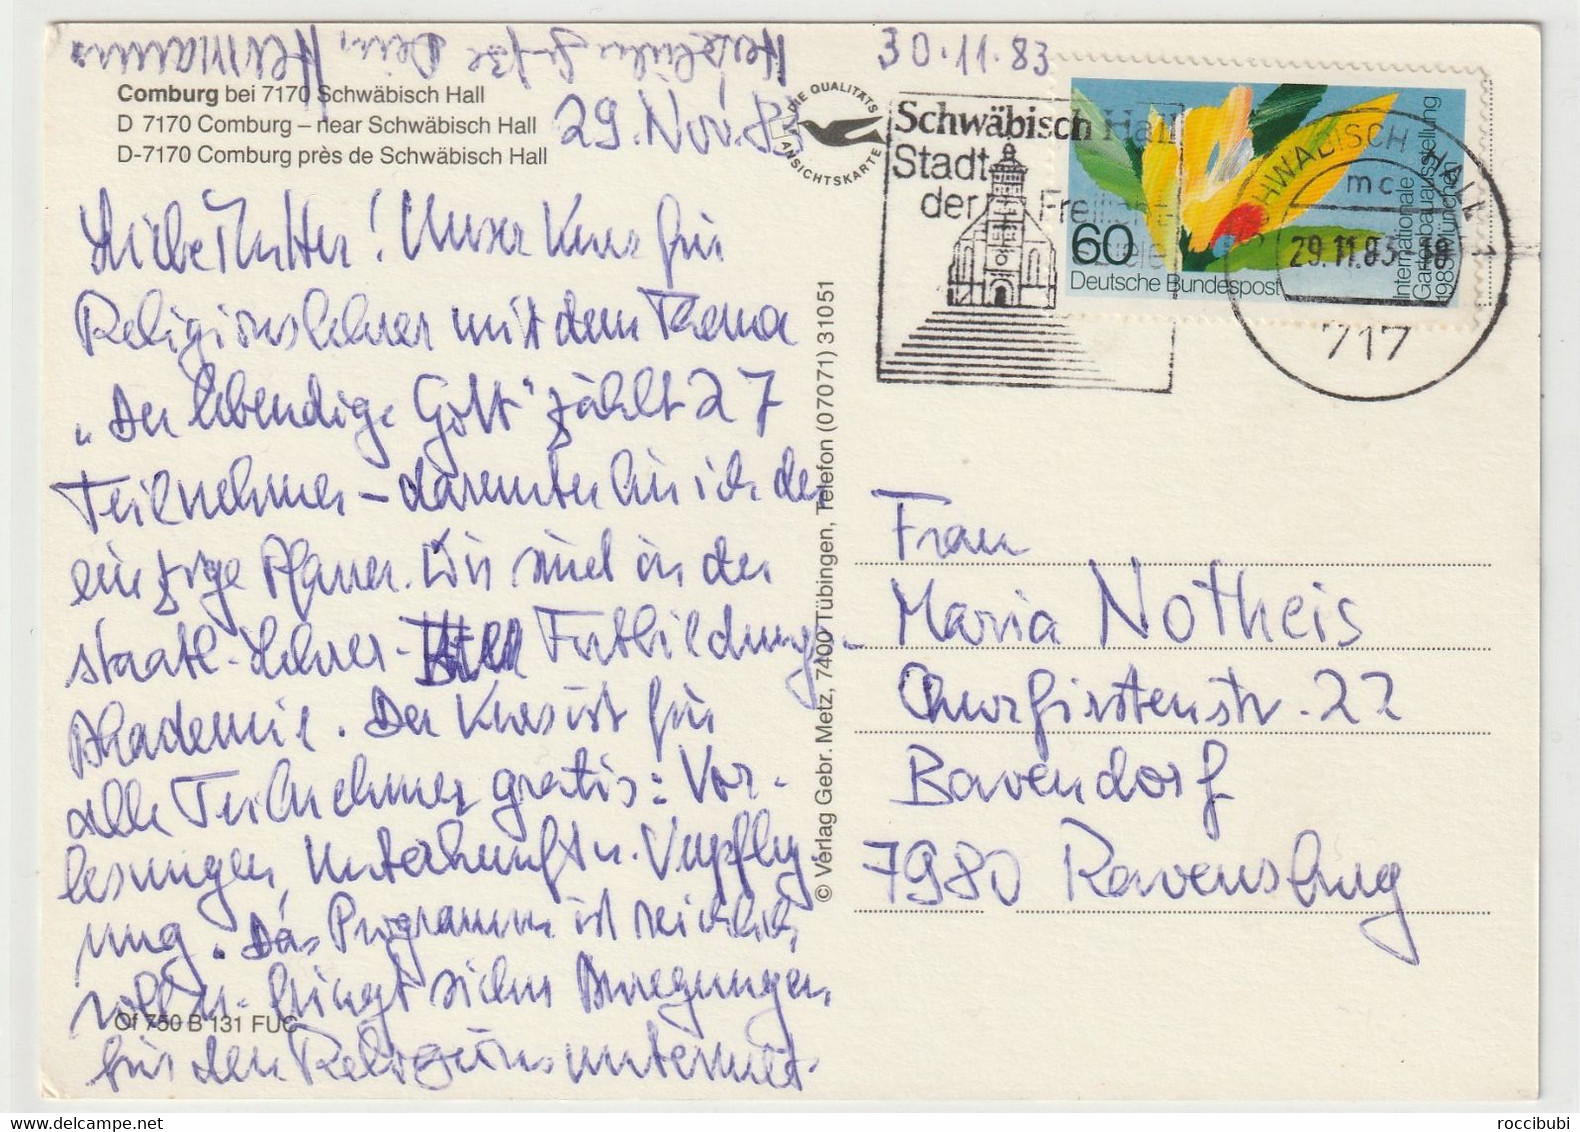 Herzliche Grüße Dein Hermann
30.11.83
Comburg bei 7170 Schwäbisch Hall
D 7170 Comburg – near Schwäbisch Hall
D-7170 Comburg près de Schwäbisch Hall
29. Nov. 83
DIE QUALITÄTS
ANSICHTSKARTE
Liebe Mutter! Unser Kurs für
Religionslehrer mit dem Thema
„Der lebendige Gott" zählt 27
Teilnehmer – darunter bin ich der
einzige Pfarrer. Wir sind in der
staatl. Lehrer- Fortbildungs-
Akademie. Der Kurs ist für
alle Teilnehmer gratis: Vor-
lesungen, Unterkunft u. Verpfleg-
ung. Das Programm ist reichlich
voll u. bringt sicher Anregungen
für den Religionsunterricht.
Of 750 B 131 FUC
© Verlag Gebr. Metz, 7400 Tübingen, Telefon (07071) 31051
Schwäbisch Hall
Stadt
der
Freilicht
spiele
60
Deutsche Bundespost
Internationale
Gartenbauausstellung
1983 München
SCHWÄBISCH HALL 1
mc
29.11.83-18
717
Frau
Maria Notheis
Churfirstenstr. 22
Bavendorf
7980 Ravensburg
roccibubi
www.delcampe.net